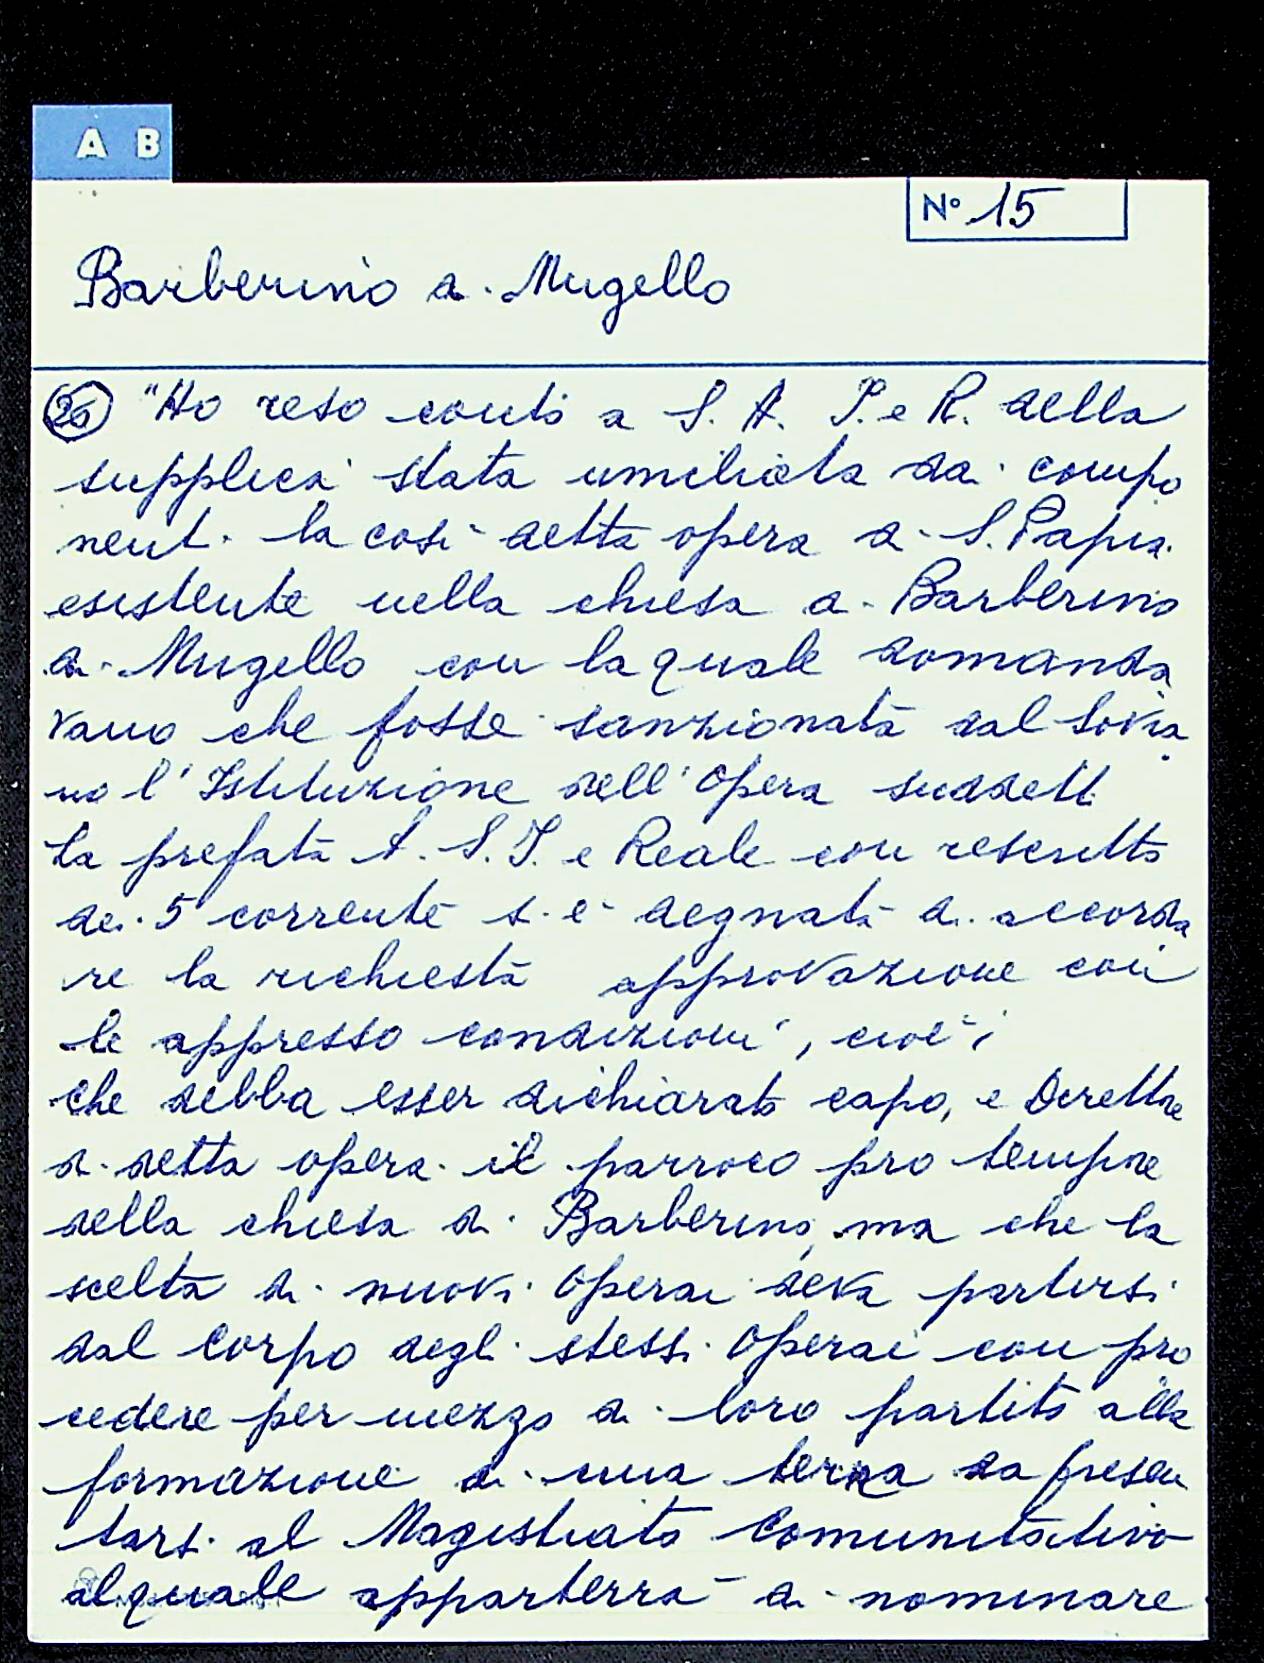 A B
N° 15
Barberino di Mugello
26 "Ho reso conto a S. A. I. e R. della
supplica stata umiliata da compo
nenti la così detta opera di S. Papia
esistente nella chiesa di Barberino
di Mugello con la quale domanda
vano che fosse sanzionata dal Sovra
no l'Istituzione dell'Opera suddett
La prefata A. S. I. e Reale con rescritto
dei 5 corrente si è degnata di accorda
re la richiesta approvazione con
le appresso condizioni, cioè:
che debba esser dichiarato capo, e Direttore
di detta opera il parroco pro tempore
della chiesa di Barberino, ma che la
scelta di nuovi Operai deva partirsi
dal Corpo degli stessi Operai con pro
cedere per mezzo di loro partito alla
formazione di una terna da presen
tarsi al Magistrato Comunitativo
al quale apparterrà di nominare